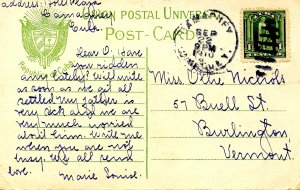 address: Hotel Plaza
Camaguey
Cuba
POSTAL UNIVER
POST-CARD
SEP
PM
Dear O. Have
you ridden
any lately? Will write
as soon as we get all
settled. My father is
very sick and we are
very much worried
about him. Write me
when you are not
busy. We all send
love.
Marie Louise.
Miss Ollie Nichols
57 Buell St.
Burlington
Vermont.